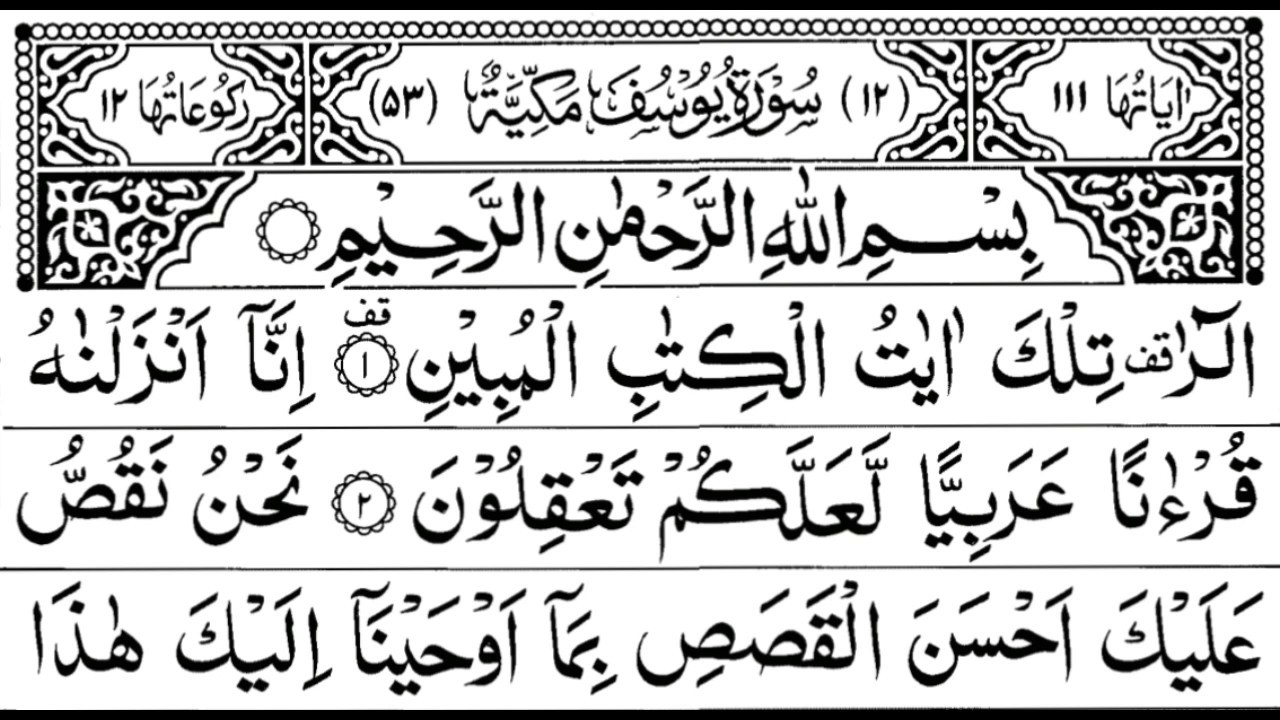 اٰیَاتُهَا ١١١ (١٢) سُوْرَةُ يُوْسُفَ مَكِّيَّةٌ (٥٣) رُكُوْعَاتُهَا ١٢
بِسْمِ اللّٰهِ الرَّحْمٰنِ الرَّحِيْمِ
الٓرٰ قف تِلْكَ اٰيٰتُ الْكِتٰبِ الْمُبِيْنِ ١ قف اِنَّاۤ اَنْزَلْنٰهُ
قُرْءٰنًا عَرَبِيًّا لَّعَلَّكُمْ تَعْقِلُوْنَ ٢ نَحْنُ نَقُصُّ
عَلَيْكَ اَحْسَنَ الْقَصَصِ بِمَاۤ اَوْحَيْنَاۤ اِلَيْكَ هٰذَا